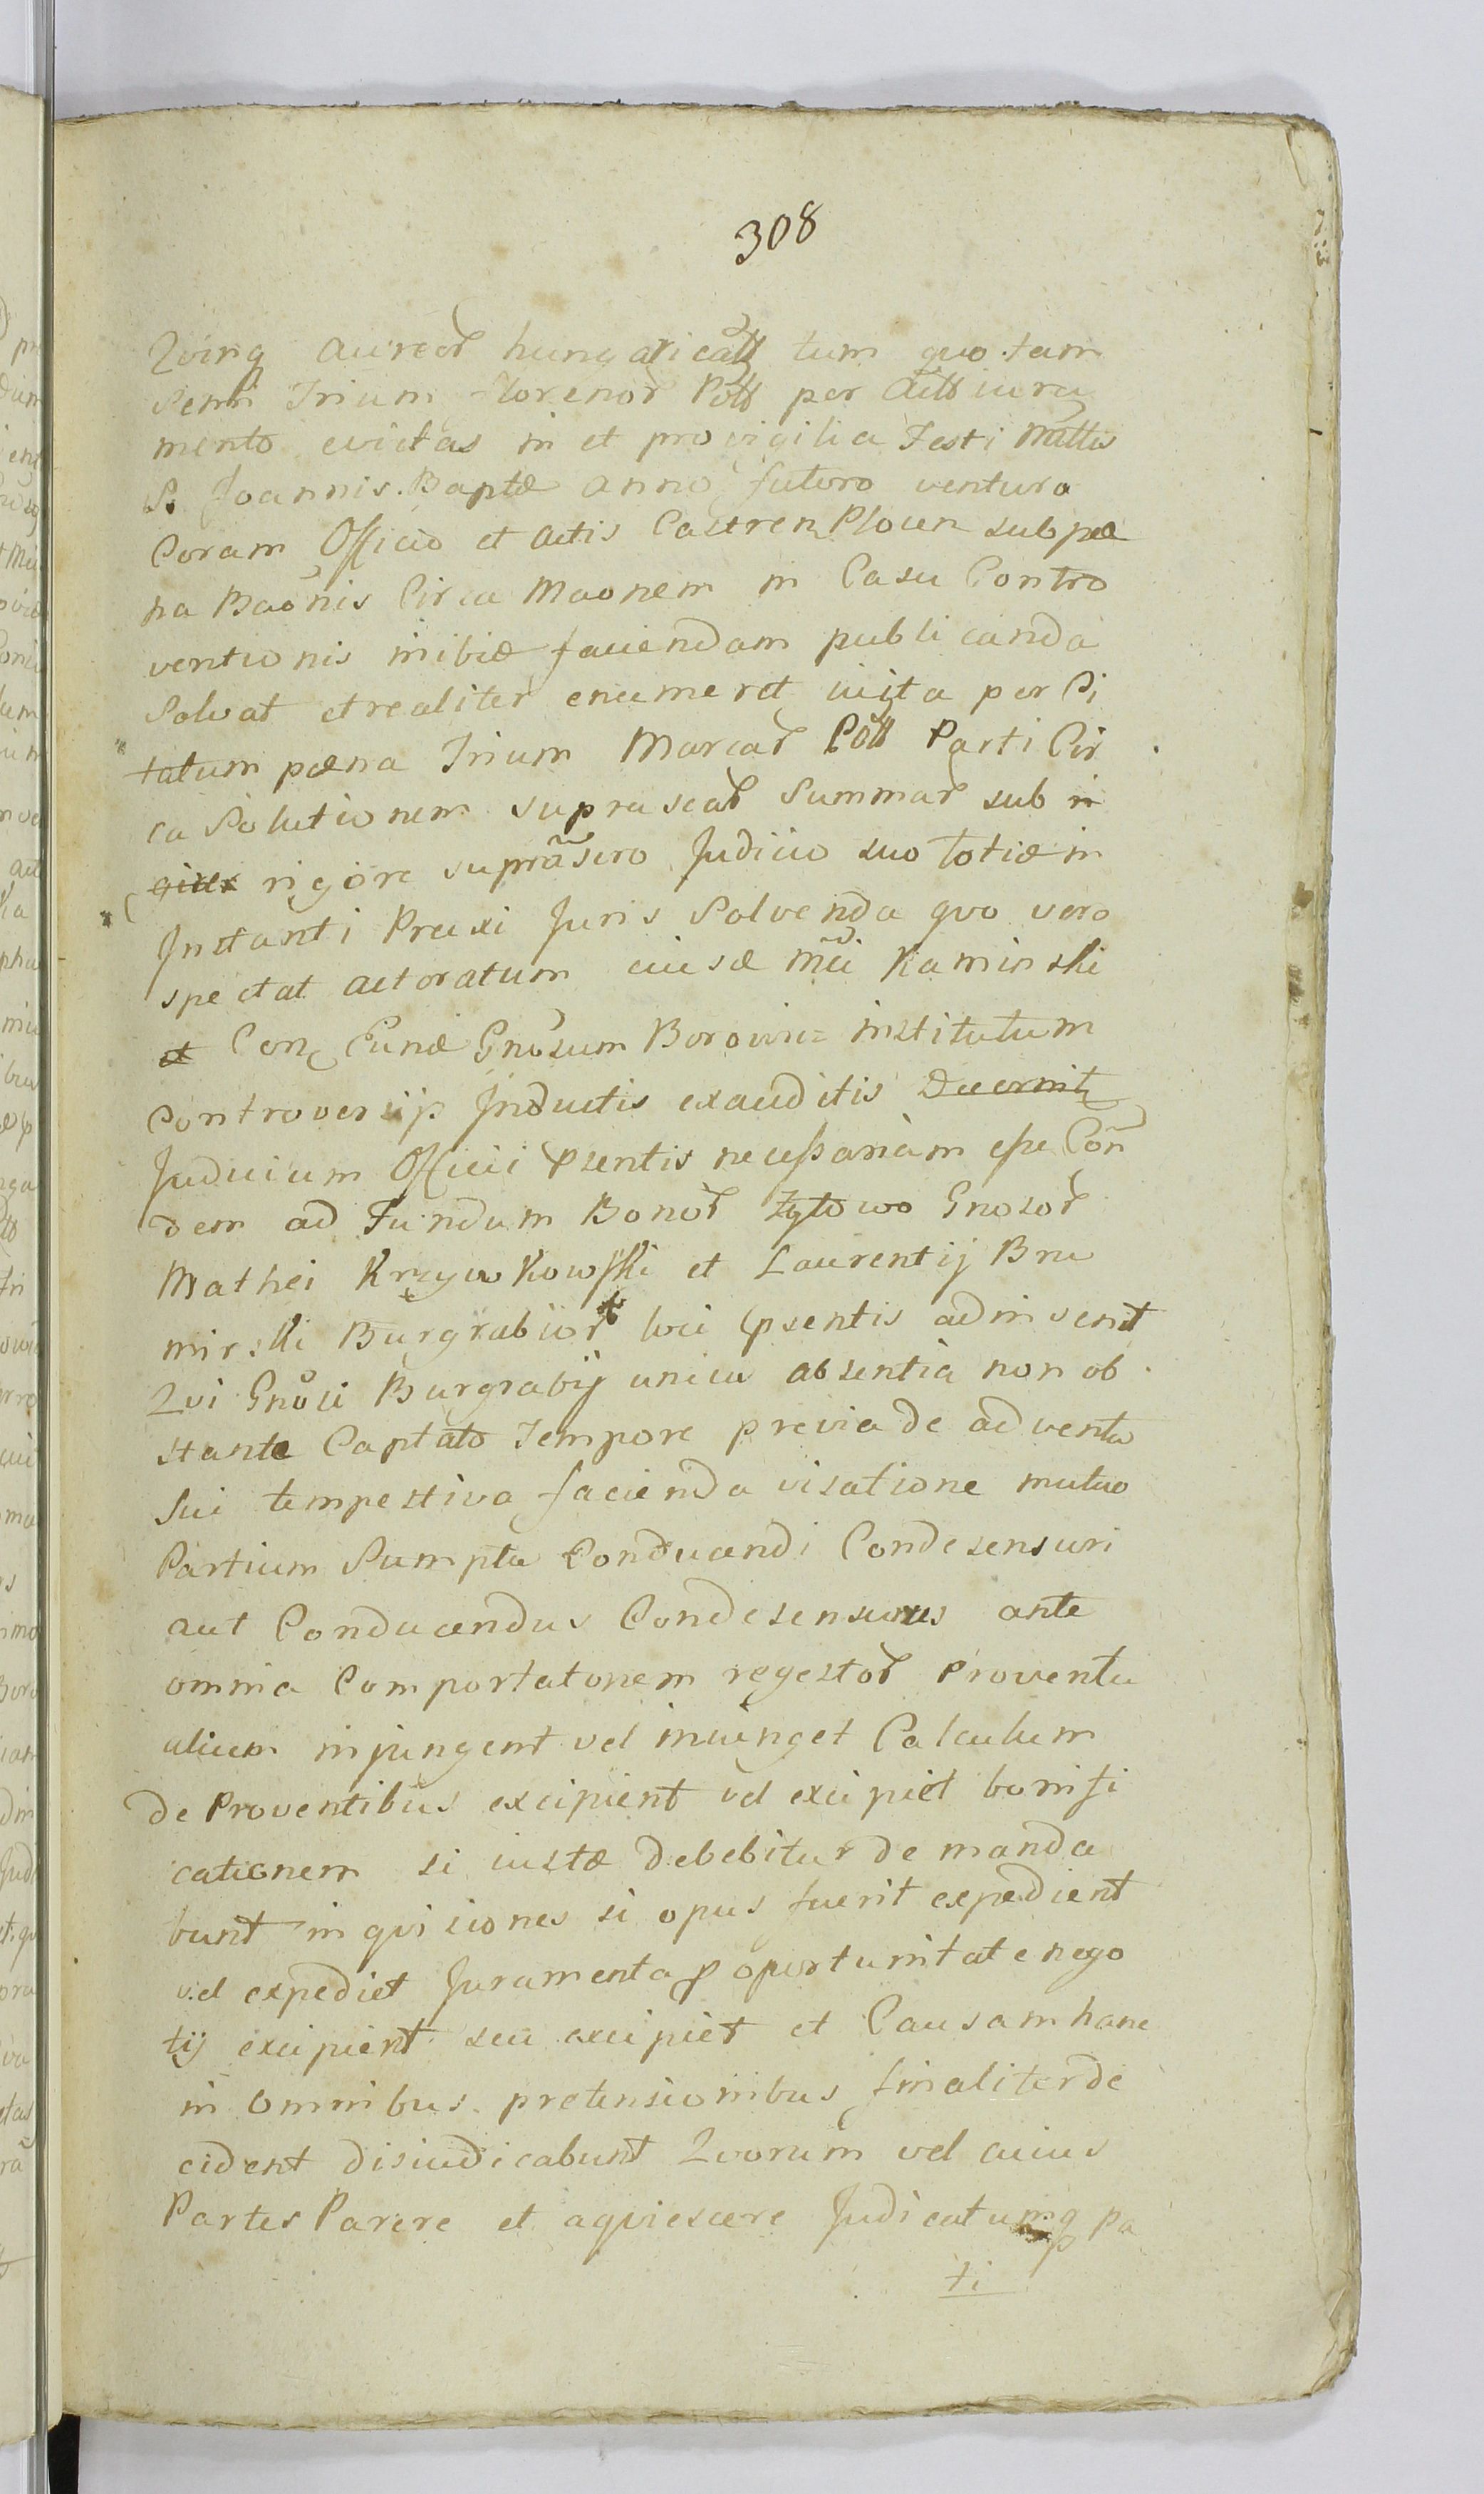 308
Quinq aureor hungaricall tum quo tam
Semi Trium florenor Poll per Actt iura
mento evictas in et pro vigilia Festi Nattis
S. Joannis Baptæ anno futuro ventura
Coram Officio et actis Castren Plocen sub pæ
na Baonis Circa Maonem in Casu Contro
ventionis inibiæ faciendam publicanda
Solvat et realiter enumeret iuxta per Ci
tatum pæna Trium Marcar Poll Parti Cir
ca Solutionem suprascar Summar sub
rigore supra sero Judicio suo totiæ in
Instanti Praxi Juris Solvenda quo vero
spectat actoratum eiusæ Mci Kaminski
et Con Eunæ Gnosum Borowic institutum
controversijs Inductis exauditis Decernit
Judicium Officii Psentis necessariam esse Con
dem ad Fundum Bonor Zytowo Gnosor
Mathei Krzywkowski et Laurentij Bro
mirski Burgrabior loci Psentis adinvenit
Qui Gnosi Burgrabij unius absentia non ob
stante Captato Tempore previa de adventu
sui tempestiva facienda visatione mutuo
Partium Sumptu Conducendi Condesensuri
aut Conducendus Condesensurus ante
omnia Comportatonem regestor Proventu
alium injungent vel iniunget Calculum
de Proventibus excipient vel excipiet bonifi
cationem si iustæ debebitur demanda
bunt inquiciones si opus fuerit expedient
vel expediet Juramenta P oportunitate nego
tij excipient seu excipiet et Causam hanc
in omnibus pretensionibus finaliter de
cident disiudicabunt Quorum vel cuius
Partes Parere et aquiescere Judicatumq pa
ti